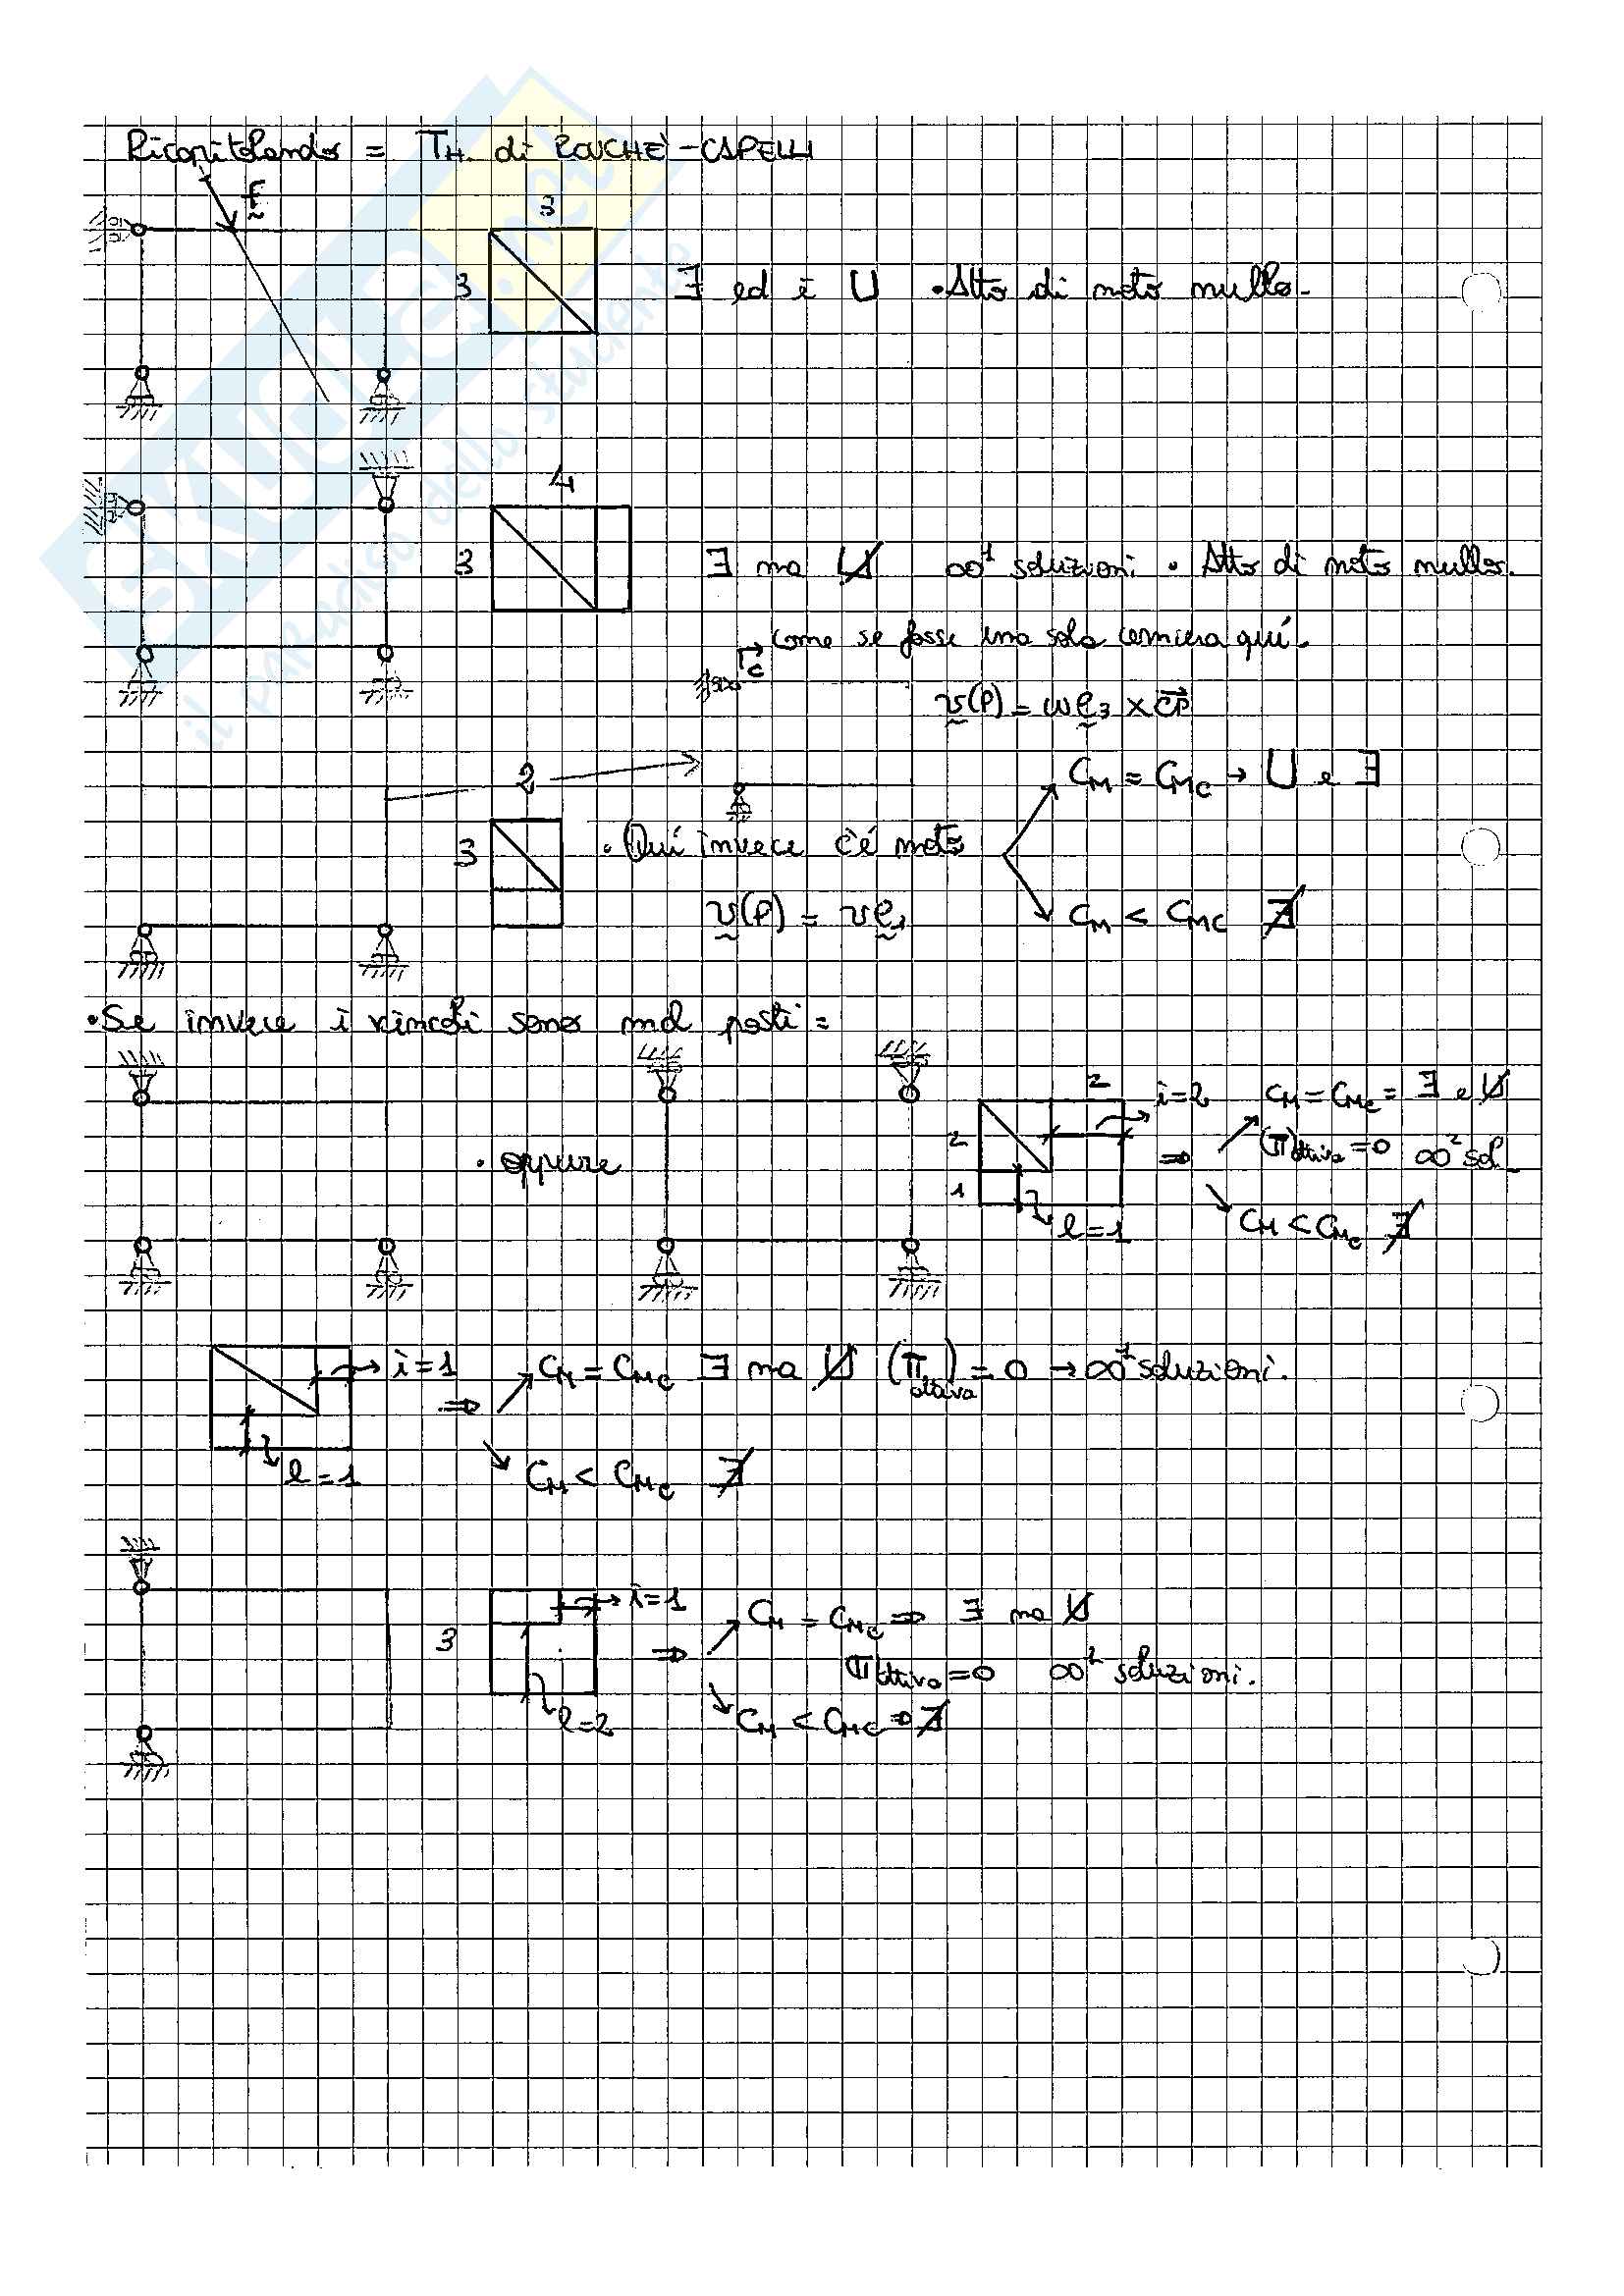 Ricapitolando = TH. di ROUCHÈ-CAPELLI
f
3
3
∃ ed è U • Atto di moto nullo.
4
3
∃ ma U̸ ∞¹ soluzioni • Atto di moto nullo.
come se fosse una sola cerniera qui.
C
v(P) = ωe₃ × CP
2
3
• Qui invece c'è moto
v(P) = ve₁
CM = CMC → U e ∃
CM < CMC ∄
• Se invece i vincoli sono mal posti =
• oppure
2
2
1
i=2
l=1
⇒
CM = CMC = ∃ e U̸
(π)attiva = 0 ∞² sol.
CM < CMC ∄
i=1
l=1
⇒
CM = CMC ∃ ma U̸ (π attiva) = 0 → ∞¹ soluzioni.
CM < CMC ∄
3
i=1
l=2
⇒
CM = CMC ⇒ ∃ ma U̸
π attiva = 0 ∞² soluzioni.
CM < CMC ⇒ ∄
SKUOLA.net
il paradiso dello studente